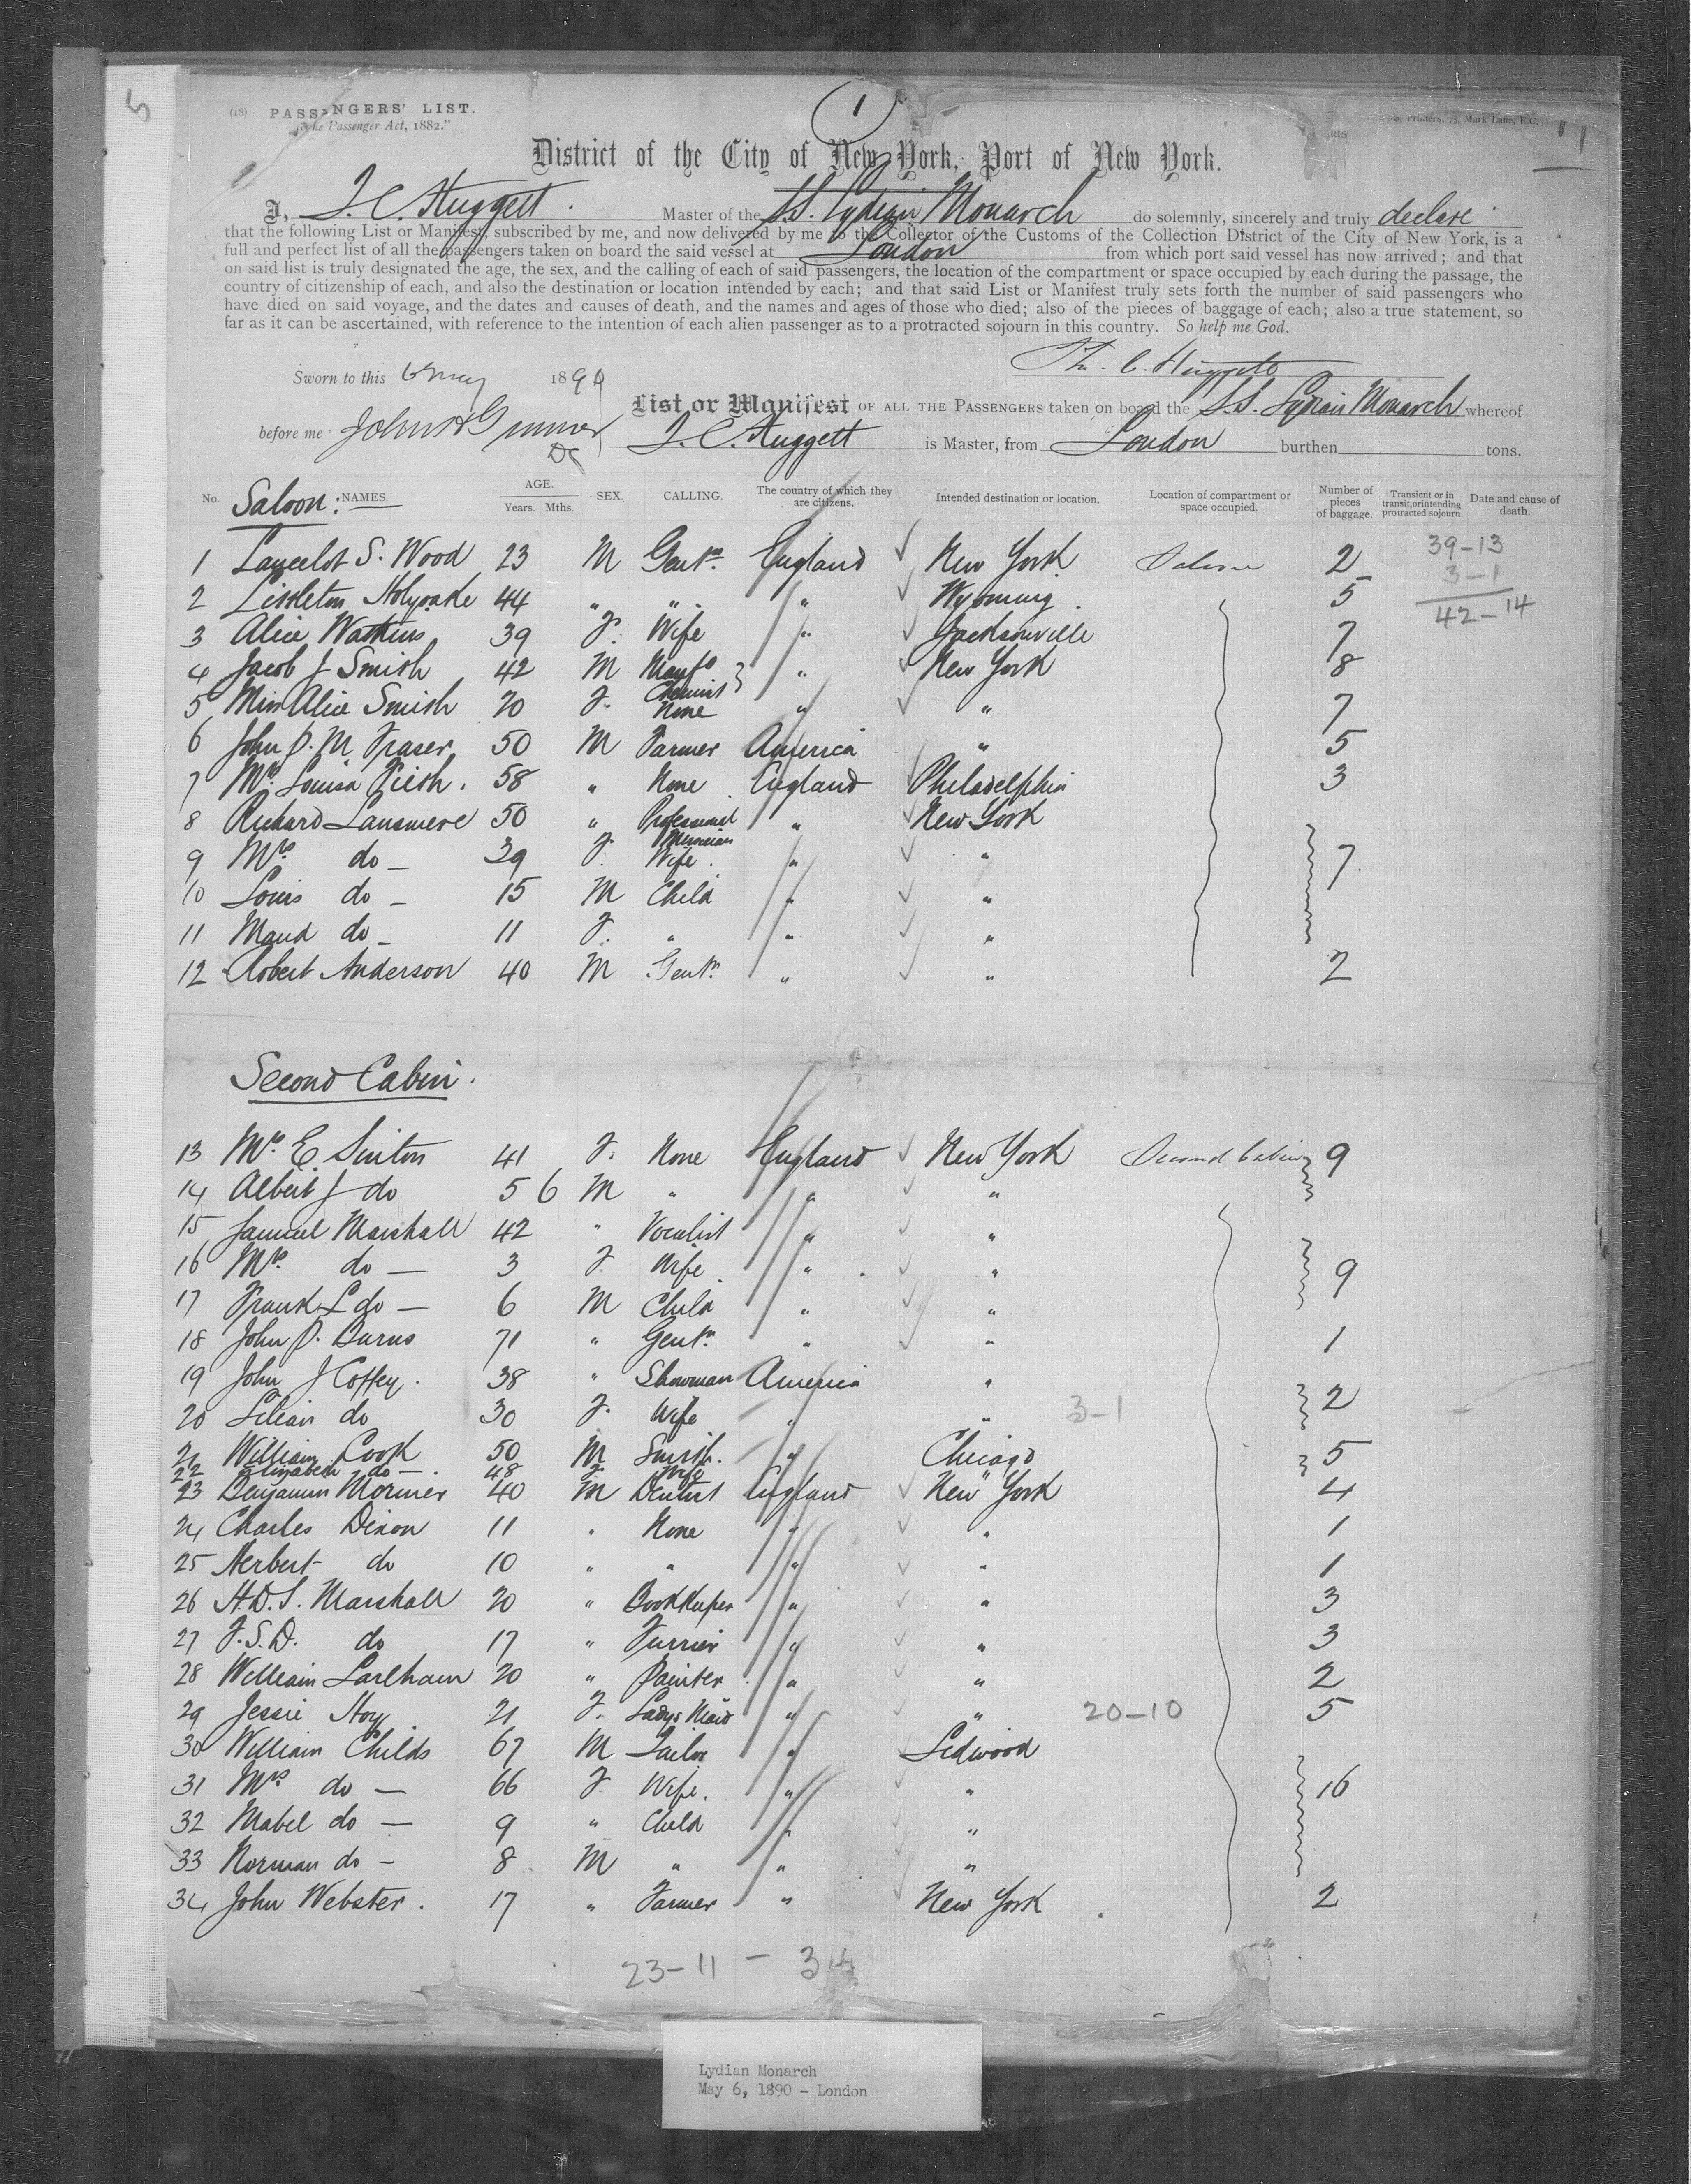 5
(18) PASSENGERS' LIST.
"The Passenger Act, 1882."
1
75, Mark Lane, E.C.
District of the City of New York, Port of New York.
I, J. C. Huggett. Master of the S.S. Lydian Monarch do solemnly, sincerely and truly declare
that the following List or Manifest, subscribed by me, and now delivered by me to the Collector of the Customs of the Collection District of the City of New York, is a
full and perfect list of all the passengers taken on board the said vessel at London from which port said vessel has now arrived; and that
on said list is truly designated the age, the sex, and the calling of each of said passengers, the location of the compartment or space occupied by each during the passage, the
country of citizenship of each, and also the destination or location intended by each; and that said List or Manifest truly sets forth the number of said passengers who
have died on said voyage, and the dates and causes of death, and the names and ages of those who died; also of the pieces of baggage of each; also a true statement, so
far as it can be ascertained, with reference to the intention of each alien passenger as to a protracted sojourn in this country. So help me God.
Sworn to this 6 May 1890
List or Manifest OF ALL THE PASSENGERS taken on board the S.S. Lydian Monarch whereof
before me John J. C. Huggett is Master, from London burthen tons.
No. Saloon: NAMES. AGE. Years. Mths. SEX. CALLING. The country of which they are citizens. Intended destination or location. Location of compartment or space occupied. Number of pieces of baggage. Transient or in transit, or intending protracted sojourn Date and cause of death.
1 Lancelot S. Wood 23 M Gentn. England New York Saloon 2 39-13
3-1
2 Littleton Holyoake 44 " " " Wyoming. 5 42-14
3 Alice Watkins 39 F. Wife " Jacksonville 7
4 Jacob J Smith 42 M Manfg Chemist " New York 8
5 Miss Alice Smith 20 F. None " " 7
6 John P. M Fraser 50 M Farmer America " 5
7 Mrs. Louisa 58 " None England Philadelphia 3
8 Richard Lansmere 50 " Professional Musician " New York
9 Mrs. do - 39 F. Wife. " " 7
10 Louis do - 15 M Child " "
11 Maud do - 11 F. " " "
12 Robert Anderson 40 M Gentn. " " 2
Second Cabin.
13 Mrs. E. Sinton 41 F. None England New York Second Cabin 9
14 Albert J do 5 6 M " " "
15 Samuel Marshall 42 " Vocalist " "
16 Mrs. do - 3 F Wife " " 9
17 Frank L do - 6 M Child " "
18 John P. Burns 71 " Gentn. " " 1
19 John J Coffey. 38 " Showman America "
20 Lilian do 30 F. Wife " " 3-1 2
21 William Cook 50 M Smith. " Chicago 5
22 Elizabeth do -. 48 F Wife "
23 Benjamin Mormer 40 M Dentist England New York 4
24 Charles Dixon 11 " None " " 1
25 Herbert do 10 " " " " 1
26 H.D.S. Marshall 20 " Bookkeeper " " 3
27 F.S.D. do 17 " Furrier " " 3
28 William Larlham 20 " Painter " " 2
29 Jessie Hoy 21 F. Ladys Maid " " 20-10 5
30 William Childs 67 M Tailor " Ledwood
31 Mrs do - 66 F Wife. " " 16
32 Mabel do - 9 " Child " "
33 Norman do - 8 M " " "
34 John Webster. 17 " Farmer " New York 2
23-11 - 34
Lydian Monarch
May 6, 1890 - London